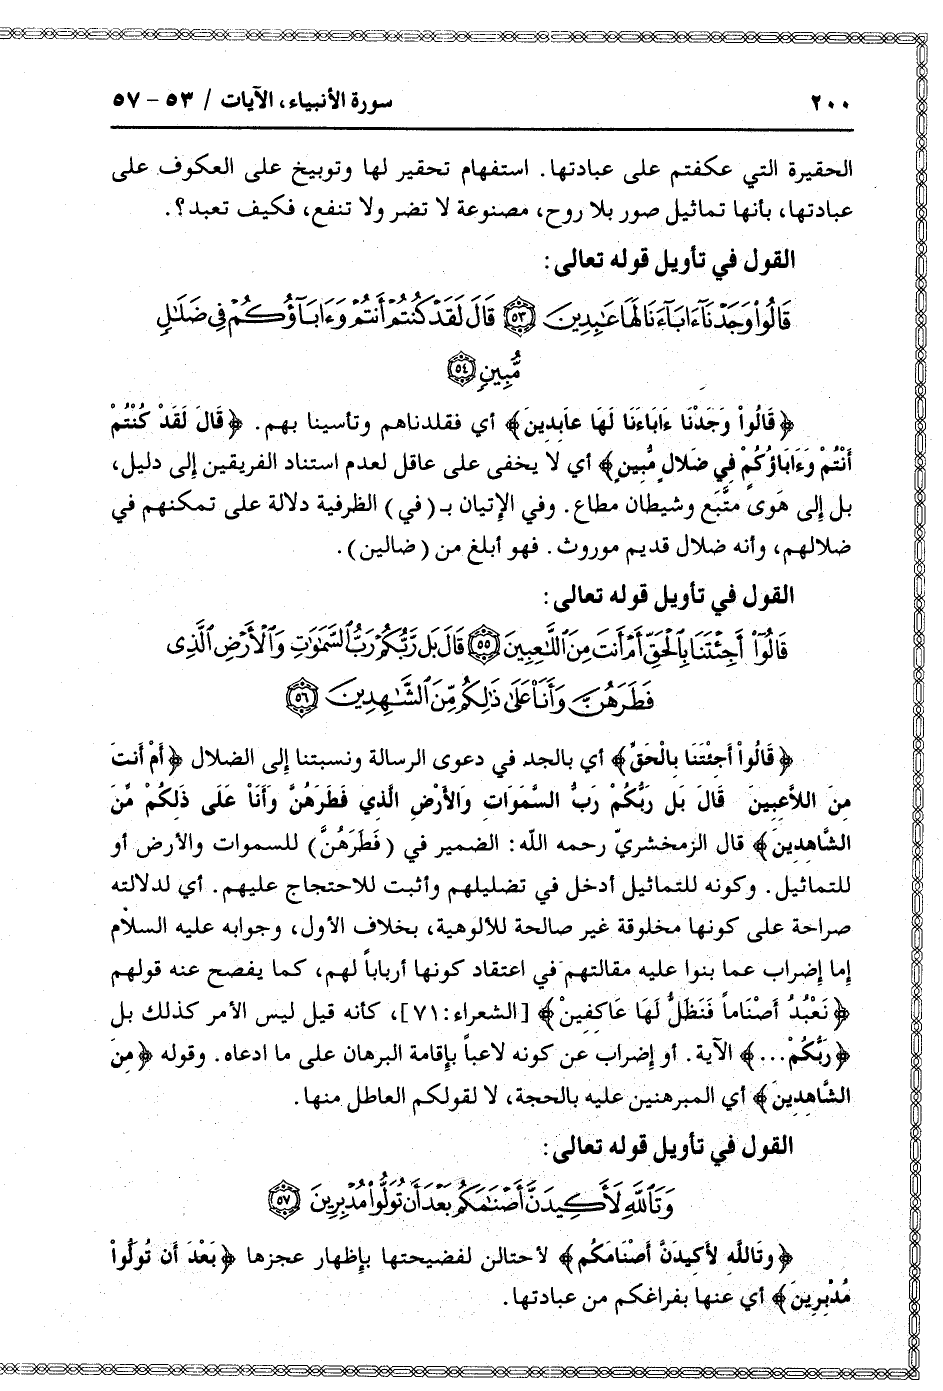 ٢٠٠ سورة الأنبياء، الآيات / ٥٣ - ٥٧
الحقيرة التي عكفتم على عبادتها. استفهام تحقير لها وتوبيخ على العكوف على
عبادتها، بأنها تماثيل صور بلا روح، مصنوعة لا تضر ولا تنفع، فكيف تعبد؟.
القول في تأويل قوله تعالى:
قَالُوا۟ وَجَدْنَآ ءَابَآءَنَا لَهَا عَٰبِدِينَ ٥٣ قَالَ لَقَدْ كُنتُمْ أَنتُمْ وَءَابَآؤُكُمْ فِي ضَلَٰلٍ
مُّبِينٍ ٥٤
﴿قَالُواْ وَجَدْنَا ءَابَاءَنَا لَهَا عَابِدِينَ﴾ أي فقلدناهم وتأسينا بهم. ﴿قَالَ لَقَدْ كُنْتُمْ
أَنْتُمْ وَءَابَاؤُكُمْ فِي ضَلَالٍ مُّبِينٍ﴾ أي لا يخفى على عاقل لعدم استناد الفريقين إلى دليل،
بل إلى هَوى متَّبَع وشيطان مطاع. وفي الإتيان بـ (في) الظرفية دلالة على تمكنهم في
ضلالهم، وأنه ضلال قديم موروث. فهو أبلغ من (ضالين).
القول في تأويل قوله تعالى:
قَالُوٓا۟ أَجِئْتَنَا بِالْحَقِّ أَمْ أَنتَ مِنَ اللَّٰعِبِينَ ٥٥ قَالَ بَل رَّبُّكُمْ رَبُّ السَّمَٰوَٰتِ وَالْأَرْضِ الَّذِى
فَطَرَهُنَّ وَأَنَا۠ عَلَىٰ ذَٰلِكُم مِّنَ الشَّٰهِدِينَ ٥٦
﴿قَالُواْ أَجِئْتَنَا بِالْحَقِّ﴾ أي بالجد في دعوى الرسالة ونسبتنا إلى الضلال ﴿أَمْ أَنتَ
مِنَ اللاَّعِبِينَ قَالَ بَل رَبُّكُمْ رَبُّ السَّمَوَاتِ وَالأَرْضِ الَّذِي فَطَرَهُنَّ وَأَنَاْ عَلَى ذَلِكُمْ مِّنَ
الشَّاهِدِينَ﴾ قال الزمخشريّ رحمه الله: الضمير في (فَطَرَهُنَّ) للسموات والأرض أو
للتماثيل. وكونه للتماثيل أدخل في تضليلهم وأثبت للاحتجاج عليهم. أي لدلالته
صراحة على كونها مخلوقة غير صالحة للألوهية، بخلاف الأول، وجوابه عليه السلام
إما إضراب عما بنوا عليه مقالتهم في اعتقاد كونها أرباباً لهم، كما يفصح عنه قولهم
﴿نَعْبُدُ أَصْنَاماً فَنَظَلُّ لَهَا عَاكِفِينَ﴾ [الشعراء:٧١]، كأنه قيل ليس الأمر كذلك بل
﴿رَبُّكُمْ...﴾ الآية. أو إضراب عن كونه لاعباً بإقامة البرهان على ما ادعاه. وقوله ﴿مِنَ
الشَّاهِدِينَ﴾ أي المبرهنين عليه بالحجة، لا لقولكم العاطل منها.
القول في تأويل قوله تعالى:
وَتَاللَّهِ لَأَكِيدَنَّ أَصْنَٰمَكُم بَعْدَ أَن تُوَلُّوا۟ مُدْبِرِينَ ٥٧
﴿وتَاللَّهِ لأَكِيدَنَّ أَصْنَامَكُم﴾ لأحتالن لفضيحتها بإظهار عجزها ﴿بَعْدَ أَن تُوَلُّواْ
مُدْبِرِينَ﴾ أي عنها بفراغكم من عبادتها.